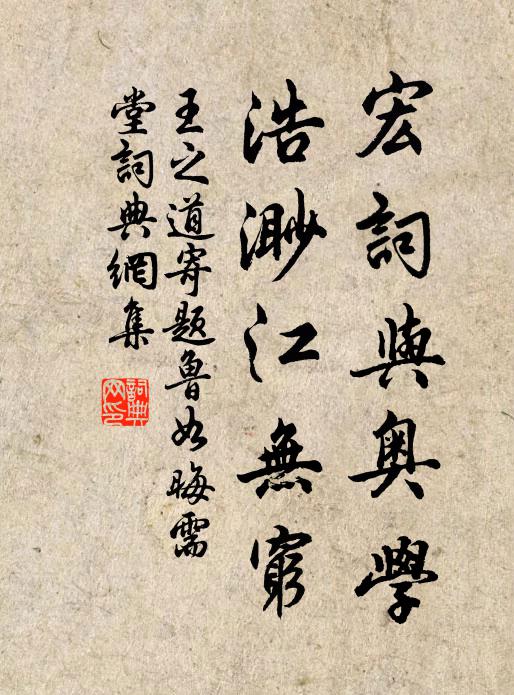 宏詞與奧學
浩渺江無窮
王之道寄題魯如晦霈
堂詞典網集
詞典網印